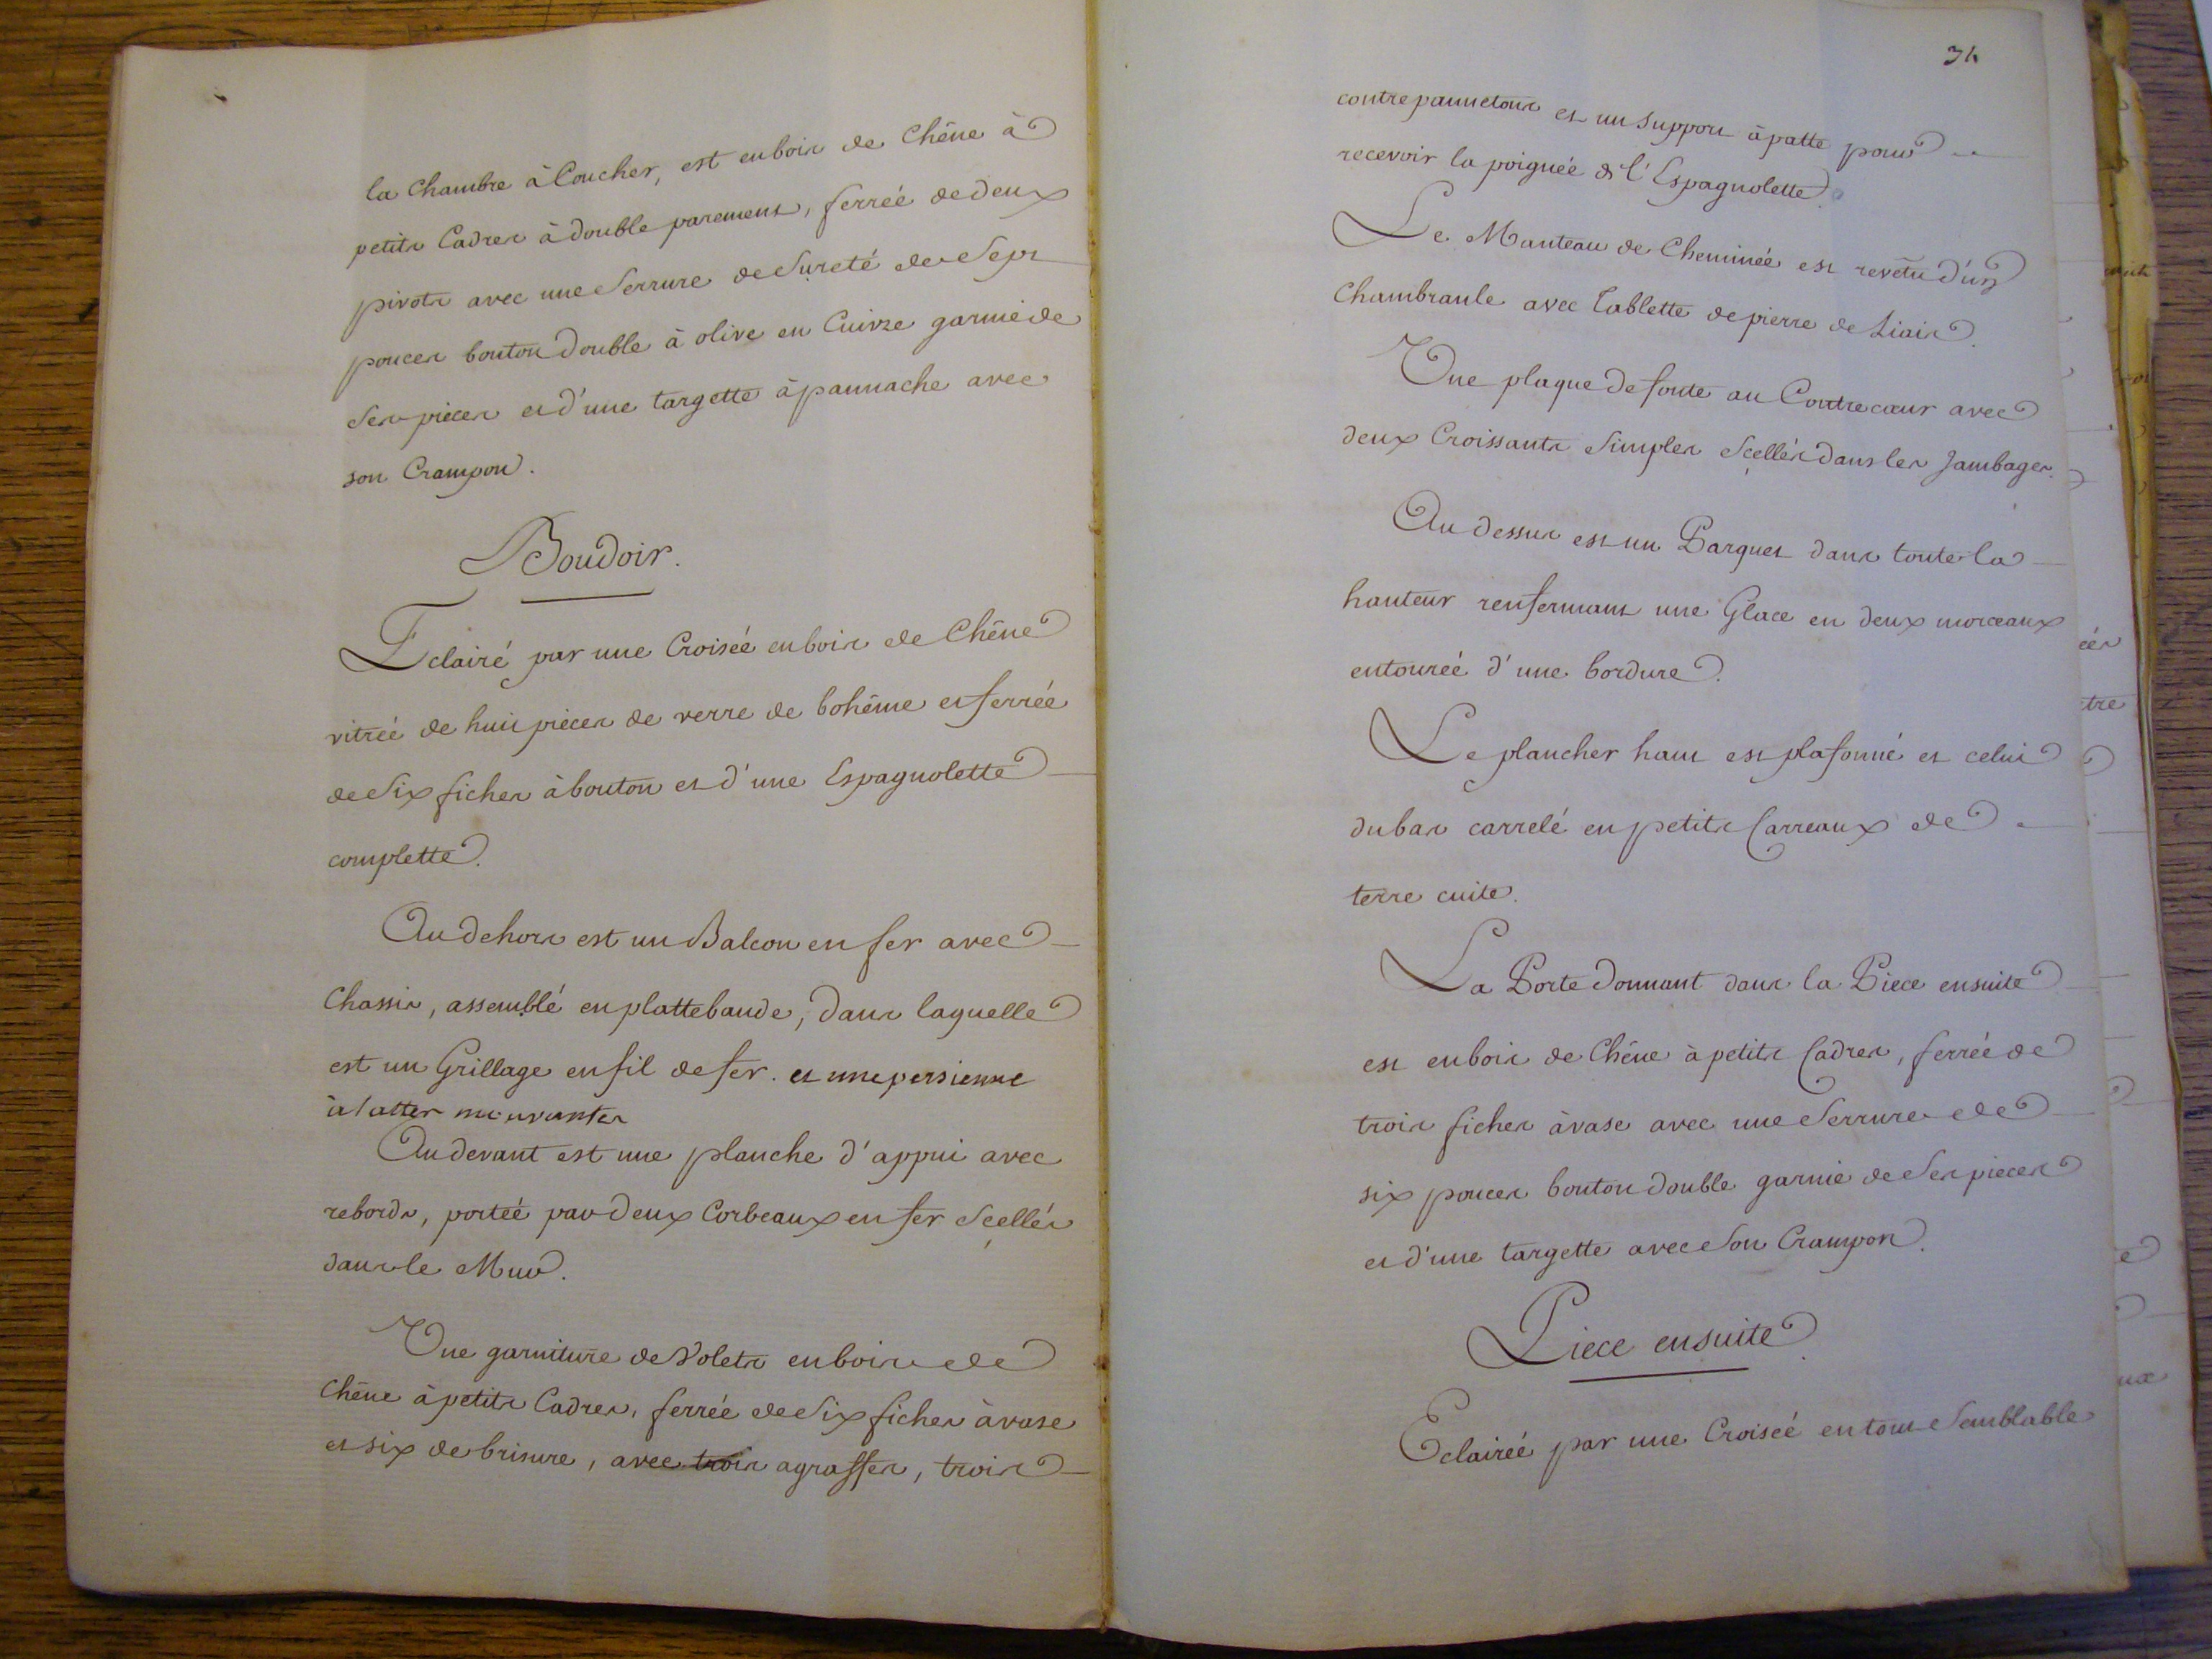 la Chambre à Coucher, est en bois de Chêne à
petits Cadres à double parement, ferrée de deux
pivots avec une Serrure de Sureté de Sept
pouces bouton double à olive en Cuivre garnie de
Ses pieces et d'une targette à pannache avec
son Crampon.
Boudoir.
Eclairé par une Croisée en bois de Chêne
vitrée de huit pieces de verre de bohême et ferrée
de Six fiches à bouton et d'une Espagnolette
complette.
Au dehors est un Balcon en fer avec
Chassis, assemblé en plattebande, dans laquelle
est un Grillage en fil de fer. et une persienne
à lattes mouvantes
Au devant est une planche d'appui avec
rebords, portée par deux Corbeaux en fer Scellés
dans le Mur.
Une garniture de Volets en bois de
Chêne à petits Cadres, ferrée de Six fiches à vase
et six de brisure, avec trois agraffes, trois
34
contrepannetons et un Support à patte pour
recevoir la poignée de l'Espagnolette.
Le Manteau de Cheminée est revêtu d'un
Chambranle avec Tablette de pierre de Liais.
Une plaque de fonte au Contrecœur avec
deux Croissants Simples Scellés dans les Jambages.
Au dessus est un Parquet dans toute la
hauteur renfermant une Glace en deux morceaux
entourée d'une bordure.
Le plancher haut est plafonné et celui
du bas carrelé en petits Carreaux de
terre cuite.
La Porte donnant dans la Piece ensuite
est en bois de Chêne à petits Cadres, ferrée de
trois fiches à vase avec une Serrure de
six pouces bouton double garnie de Ses pieces
et d'une targette avec Son Crampon.
Piece ensuite.
Eclairée par une Croisée en tout Semblable